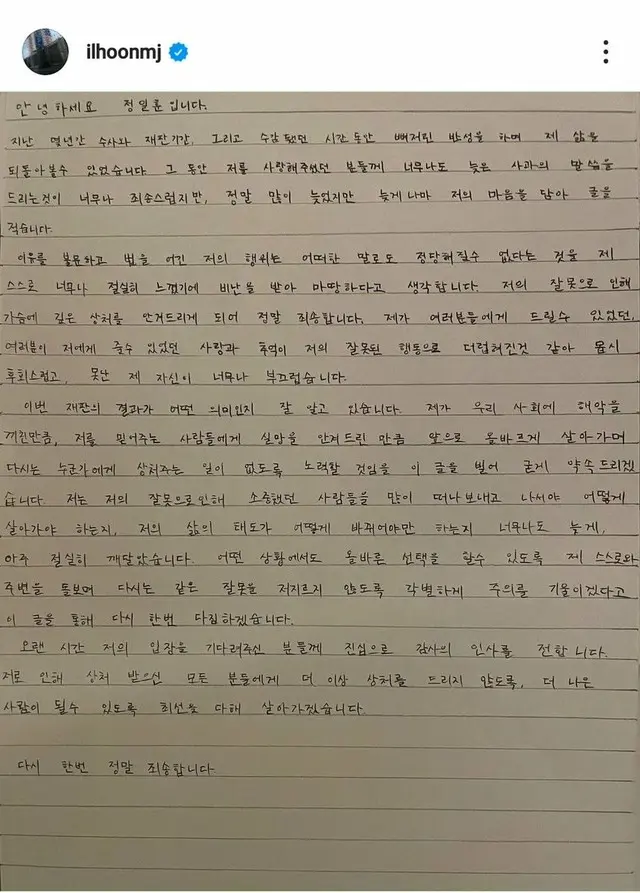 ilhoonmj
안녕하세요 정일훈입니다.
지난 몇년간 수사와 재판기간, 그리고 수감됐던 시간동안 뼈저린 반성을 하며 제 삶을
되돌아볼수 있었습니다 그 동안 저를 사랑해주셨던 분들께 너무나도 늦은 사과의 말씀을
드리는것이 너무나 죄송스럽지만, 정말 많이 늦었지만 늦게나마 저의 마음을 담아 글을
적습니다.
이유를 불문하고 법을 어긴 저의 행위는 어떠한 말로도 정당해질수 없다는 것을 제
스스로 너무나 절실히 느꼈기에 비난을 받아 마땅하다고 생각합니다. 저의 잘못으로 인해
가슴에 깊은 상처를 안겨드리게 되어 정말 죄송합니다. 제가 여러분들에게 드릴수 있었던,
여러분이 저에게 줄수 있었던 사랑과 추억이 저의 잘못된 행동으로 더럽혀진것 같아 몹시
후회스럽고, 못난 제 자신이 너무나 부끄럽습니다.
이번 재판의 결과가 어떤 의미인지 잘 알고 있습니다. 제가 우리 사회에 해악을
끼친만큼, 저를 믿어주는 사람들에게 실망을 안겨드린 만큼 앞으로 올바르게 살아가며
다시는 누군가에게 상처주는 일이 없도록 노력할 것임을 이 글을 빌어 굳게 약속드리겠
습니다. 저는 저의 잘못으로인해 소중했던 사람들을 많이 떠나보내고 나서야 어떻게
살아가야 하는지, 저의 삶의 태도가 어떻게 바뀌어야만 하는지 너무나도 늦게,
아주 절실히 깨달았습니다. 어떤 상황에서도 올바른 선택을 할수 있도록 제 스스로와
주변을 돌보며 다시는 같은 잘못을 저지르지 않도록 각별하게 주의를 기울이겠다고
이 글을 통해 다시 한번 다짐하겠습니다.
오랜 시간 저의 입장을 기다려주신 분들께 진심으로 감사의 인사를 전합니다.
저로 인해 상처 받으신 모든 분들에게 더 이상 상처를 드리지 않도록, 더 나은
사람이 될수 있도록 최선을 다해 살아가겠습니다.
다시 한번 정말 죄송합니다